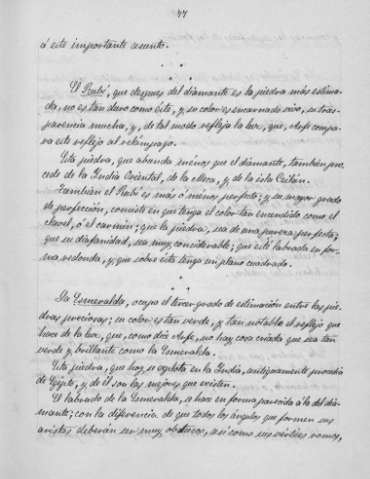 77
á este importante asunto.
El Rubí, que despues del diamante es la piedra más estima-
da, no es tan duro como éste, y su color es encarnado vivo, su tras-
parencia mucha, y, de tal modo refleja la luz, que, Arfe compa-
ra este reflejo al relámpago.
Esta piedra, que abunda menos que el diamante, tambien pro-
cede de la India Oriental, de la Meca, y de la isla Ceilán.
Tambien el Rubí es más ó menos perfecto; y su mayor grado
de perfeccion, consiste en que tenga el color tan encendido como el
clavel, ó el carmin; que la piedra, sea de una pureza perfecta;
que su diafanidad, sea muy considerable; que esté labrada en for-
ma redonda, y, que sobre ésta tenga un plano cuadrado.
La Esmeralda, ocupa el tercer grado de estimacion entre las pie-
dras preciosas; su color es tan verde, y tan notable el reflejo que
hace de la luz, que, como dice Arfe, no hay cosa criada que sea tan
verde y brillante como la Esmeralda.
Esta piedra, que hoy se explota en la India, antiguamente procedia
de Egipto, y de él son las mejores que existen.
El labrado de la Esmeralda, se hace en forma parecida á la del dia-
mante; con la diferencia de que todos los ángulos que formen sus
aristas deberán ser muy obtusos, así como sus vértices romos,